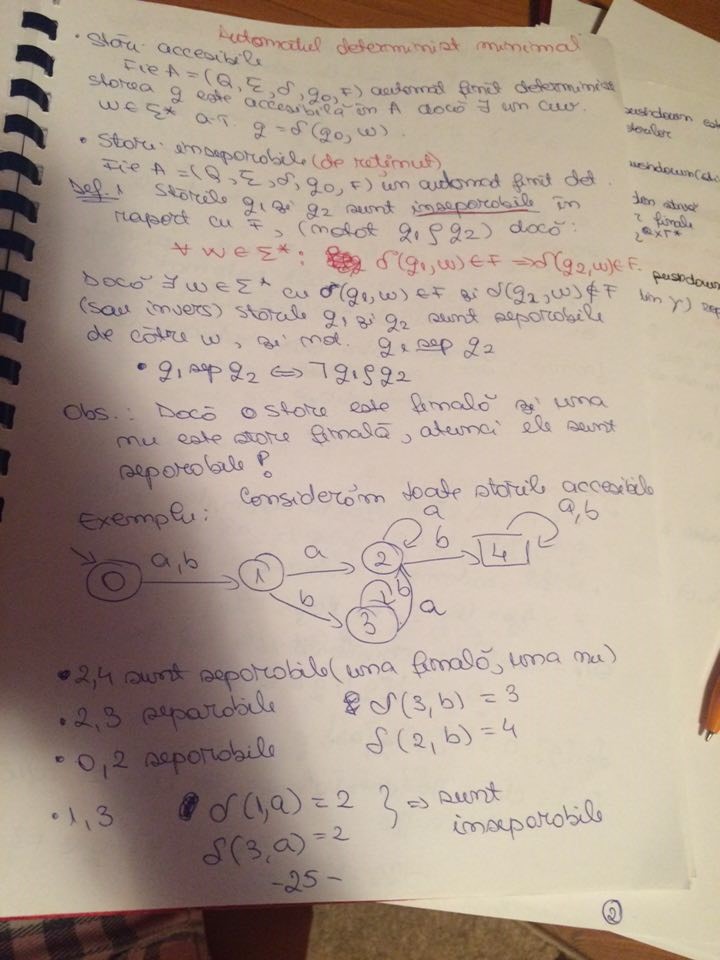 Automatul determinist minimal
• Stări accesibile
Fie A = (Q, Σ, δ, q0, F) automat finit determinist
starea q este accesibilă în A dacă ∃ un cuv.
w ∈ Σ* a.î. q = δ(q0, w).
• Stări inseparabile (de reținut)
Fie A = (Q, Σ, δ, q0, F) un automat finit det.
Def.: Stările q1 și q2 sunt inseparabile în
raport cu F, (notat q1 ρ q2) dacă:
∀ w ∈ Σ*: δ(q1, w) ∈ F ⇒ δ(q2, w) ∈ F.
Dacă ∃ w ∈ Σ* cu δ(q1, w) ∈ F și δ(q2, w) ∉ F
(sau invers) stările q1 și q2 sunt separabile
de către w, și not. q1 sep q2
• q1 sep q2 ⇔ ¬ q1 ρ q2
Obs.: Dacă o stare este finală și una
nu este stare finală, atunci ele sunt
separabile!
Considerăm toate stările accesibile
Exemplu:
a a,b
a,b a b
0 1 2 4
b b a
3
• 2,4 sunt separabile (una finală, una nu)
• 2,3 separabile δ(3, b) = 3
δ(2, b) = 4
• 0,2 separabile
• 1,3 δ(1, a) = 2 } ⇒ sunt
δ(3, a) = 2 inseparabile
-25-
2